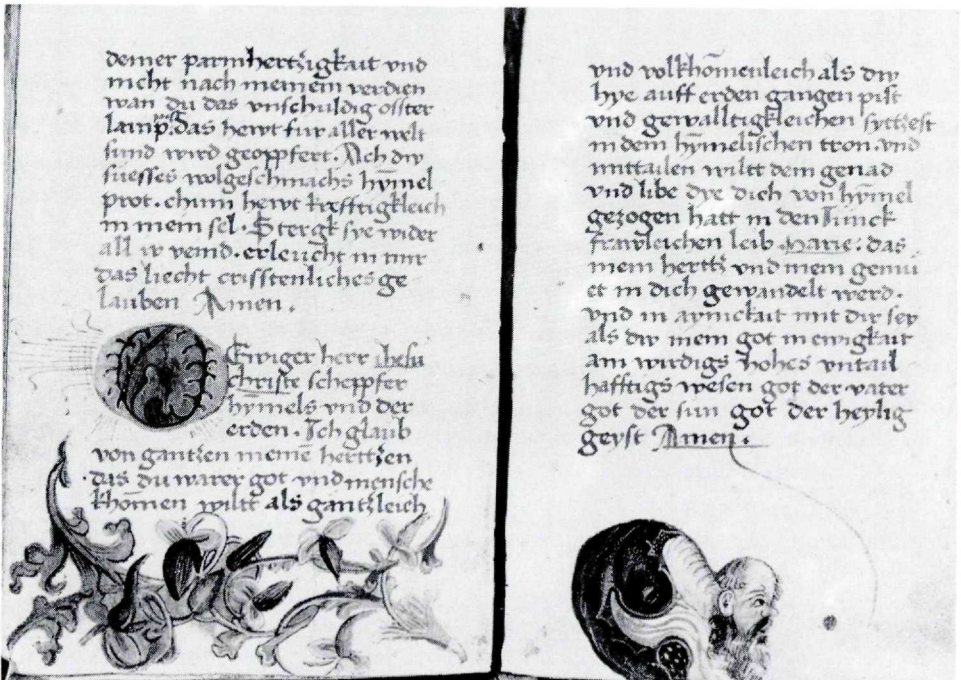 deiner parmhertzigkait vnd
nicht nach meinem verdien
wan du das vnschuldig osster
lamp. das hewt fur aller welt
sund wird geoppfert. Ach dw
suesses wolgeschmachs hÿmel
prot. chum hewt krefftigkleich
in mein sel. Stergk sye wider
all ir veind. erleucht in mir
das liecht crisstenliches ge
lauben Amen.
Ewiger herr ihesu
christe scheppfer
hÿmels vnd der
erden. Ich glaub
von gantzen meinē herttzen
das du warer got vnd mensche
khōmen wiltt als gantzleich
vnd volkhōmenleich als dw
hye auff erden gangen pist
vnd gewalltigkleichen syttzest
in dem hÿmelischen tron. vnd
mittailen wiltt dein genad
vnd libe dye dich von hÿmel
gezogen hatt in den Junck
frawleichen leib Marie. das
mein herttz vnd mein gemu
et in dich gewandelt werd.
vnd in ainickait mit dir sey
als dw mein got in ewigkait
ain wirdigs hohes vntail
hafftigs wesen got der vater
got der sun got der heylig
geyst Amen.